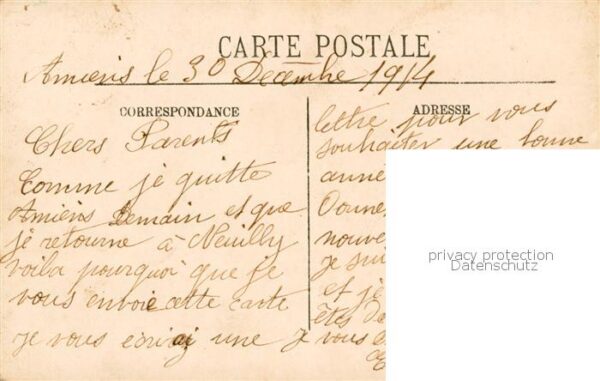 CARTE POSTALE
Amiens le 30 Décembre 1914
CORRESPONDANCE
Chers Parents
Comme je quitte
Amiens Demain et que
je retourne à Neuilly
voila pourquoi que je
vous envoie cette carte
je vous ecriai une
ADRESSE
lettre pour vous
souhaiter une bonne
anne
nouve
je sui
et je
êtes de
vous
privacy protection
Datenschutz